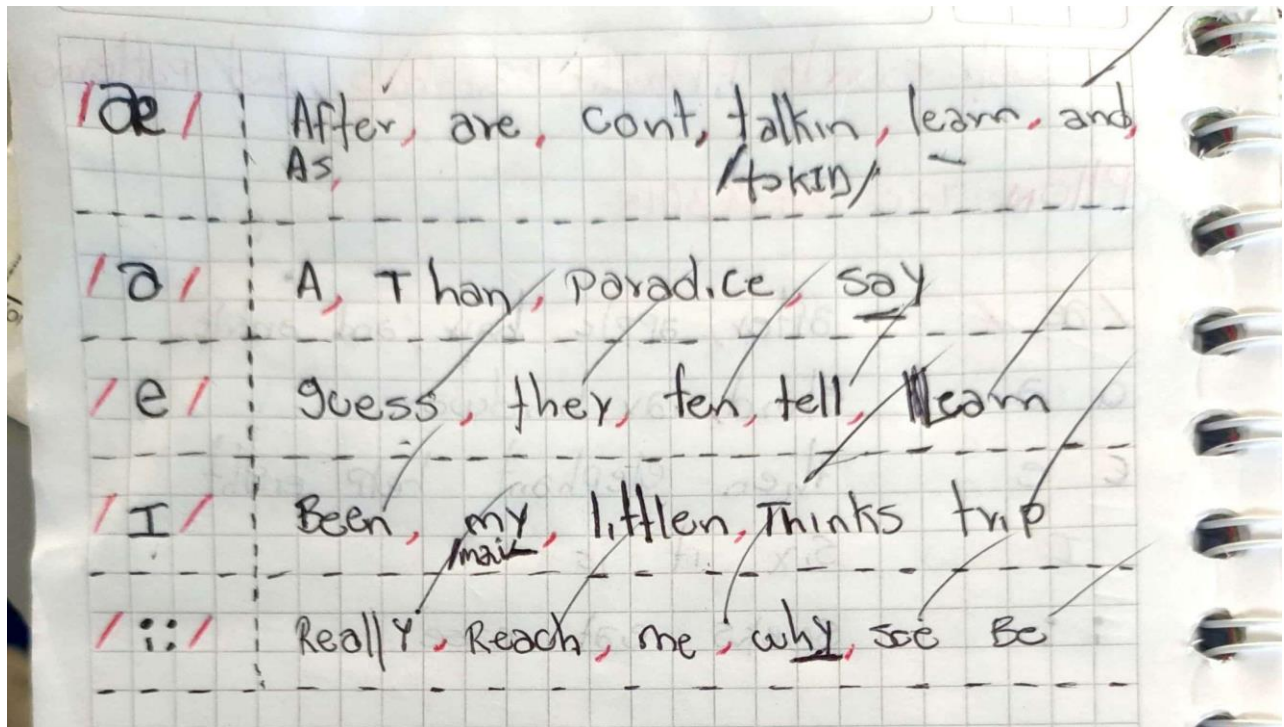 /æ/ After, are, cont, talkin, learn, and,
As, /tɔKID/
/a/ A, Than, paradice, say
/e/ guess, they, ten, tell, learn
/I/ Been, my, littlen, Thinks trip
/mai/
/i:/ Really, Reach, me, why, see Be